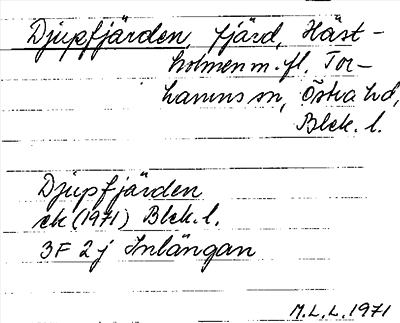 Djupfjärden, fjärd, Häst-
holmen m. fl. Tor-
hamns sn, Östra hd,
Blek. l.
Djupfjärden
ek (1971) Blek. l.
3F 2j Inlängan
M.L.L. 1971